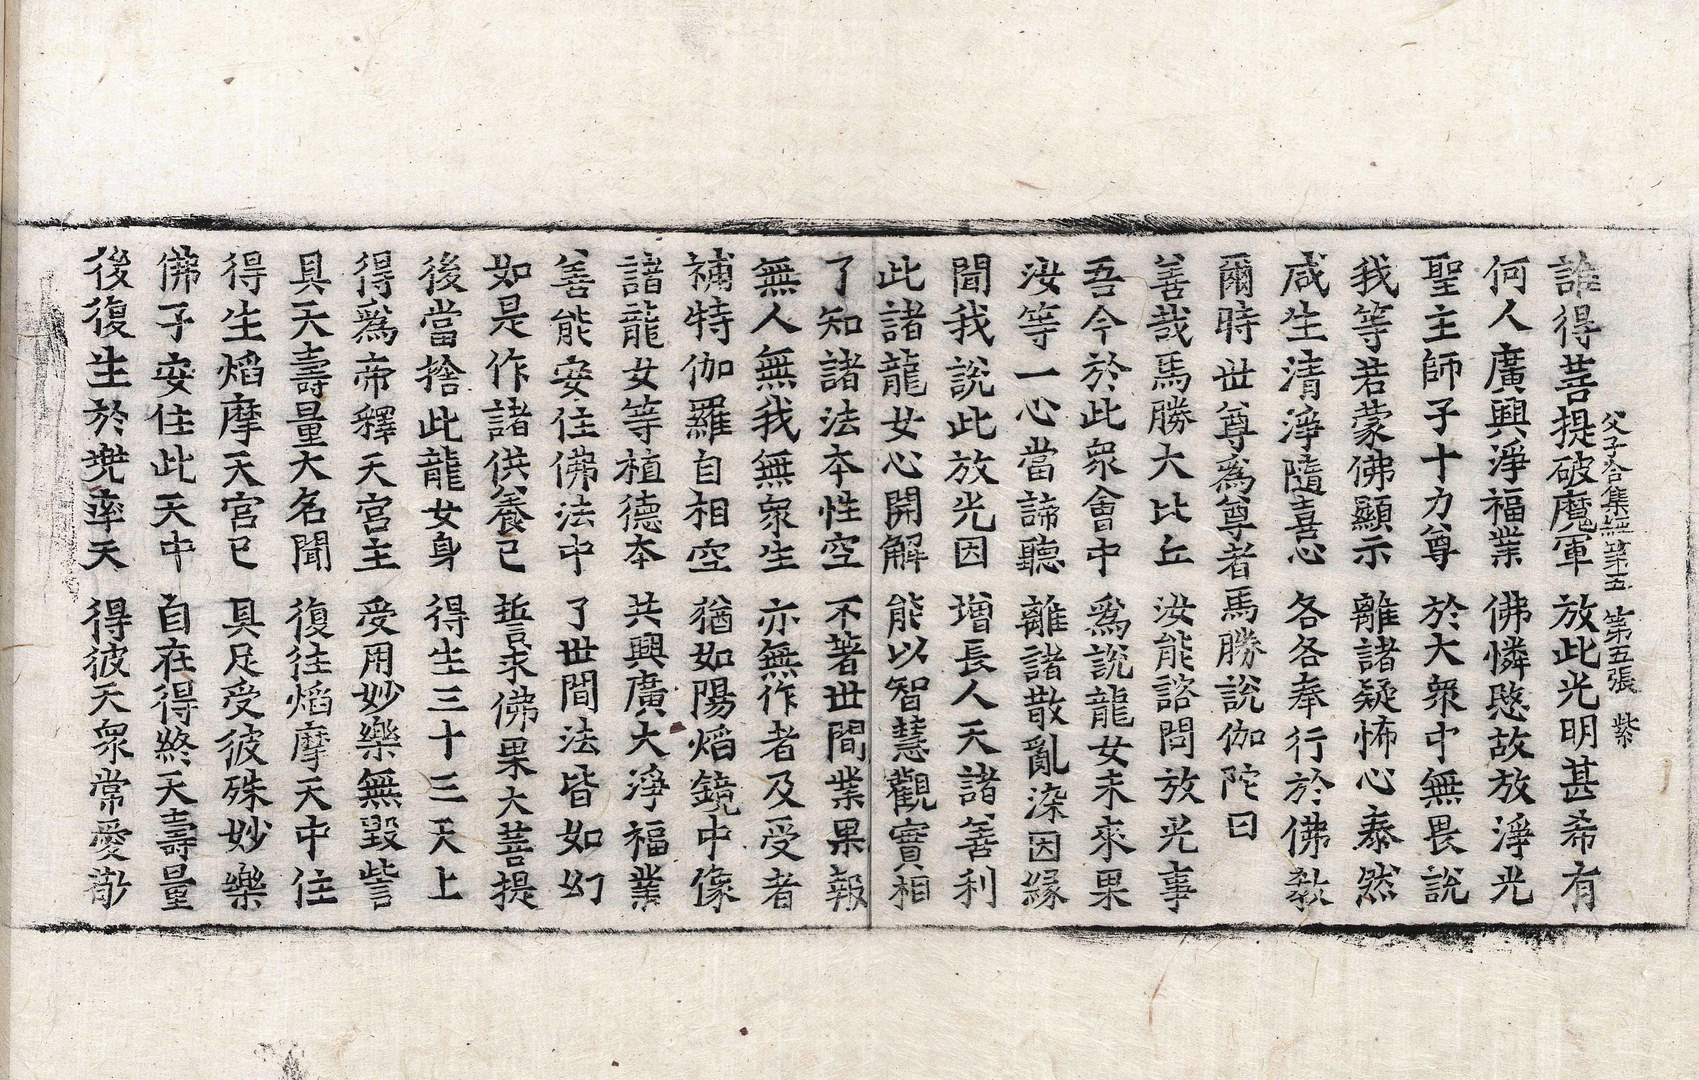 父子合集經第五 第五張 紫
誰得菩提破魔軍 放此光明甚希有
何人廣興淨福業 佛憐愍故放淨光
聖主師子十力尊 於大衆中無畏說
我等若蒙佛顯示 離諸疑怖心泰然
咸生清淨隨喜心 各各奉行於佛敎
爾時世尊爲尊者馬勝說伽陀曰
善哉馬勝大比丘 汝能諮問放光事
吾今於此衆會中 爲說龍女未來果
汝等一心當諦聽 離諸散亂染因緣
聞我說此放光因 增長人天諸善利
此諸龍女心開解 能以智慧觀實相
了知諸法本性空 不著世間業果報
無人無我無衆生 亦無作者及受者
補特伽羅自相空 猶如陽焰鏡中像
諸龍女等植德本 共興廣大淨福業
善能安住佛法中 了世間法皆如幻
如是作諸供養已 誓求佛果大菩提
後當捨此龍女身 得生三十三天上
得爲帝釋天宮主 受用妙樂無毀訾
具天壽量大名聞 復往焰摩天中住
得生焰摩天宮已 具足受彼殊妙樂
佛子安住此天中 自在得終天壽量
後復生於兜率天 得彼天衆常愛敬